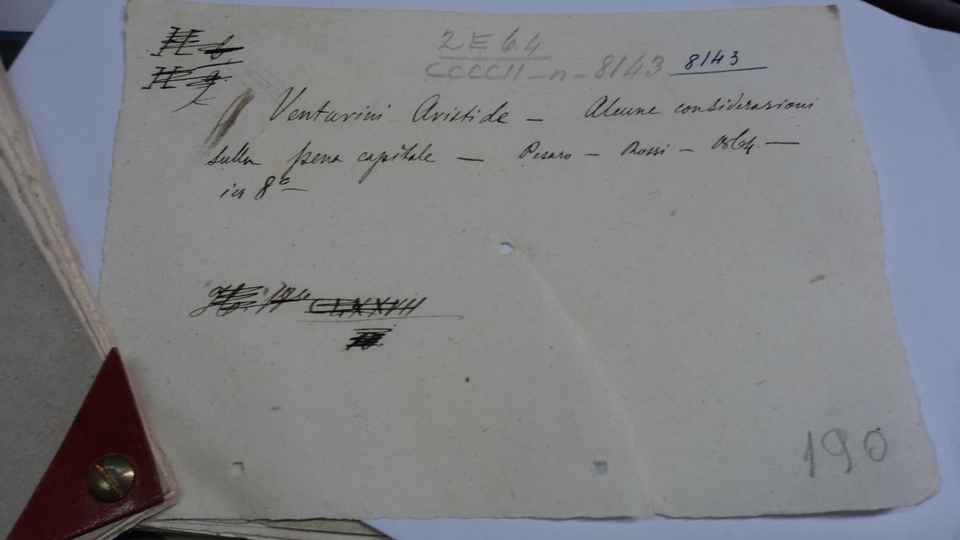 2 E 6.4
CCCCII - n - 8143 8143
Venturini Aristide — Alcune considerazioni
sulla pena capitale — Pesaro — Rossi —
in 8º
CLXXVIII
190